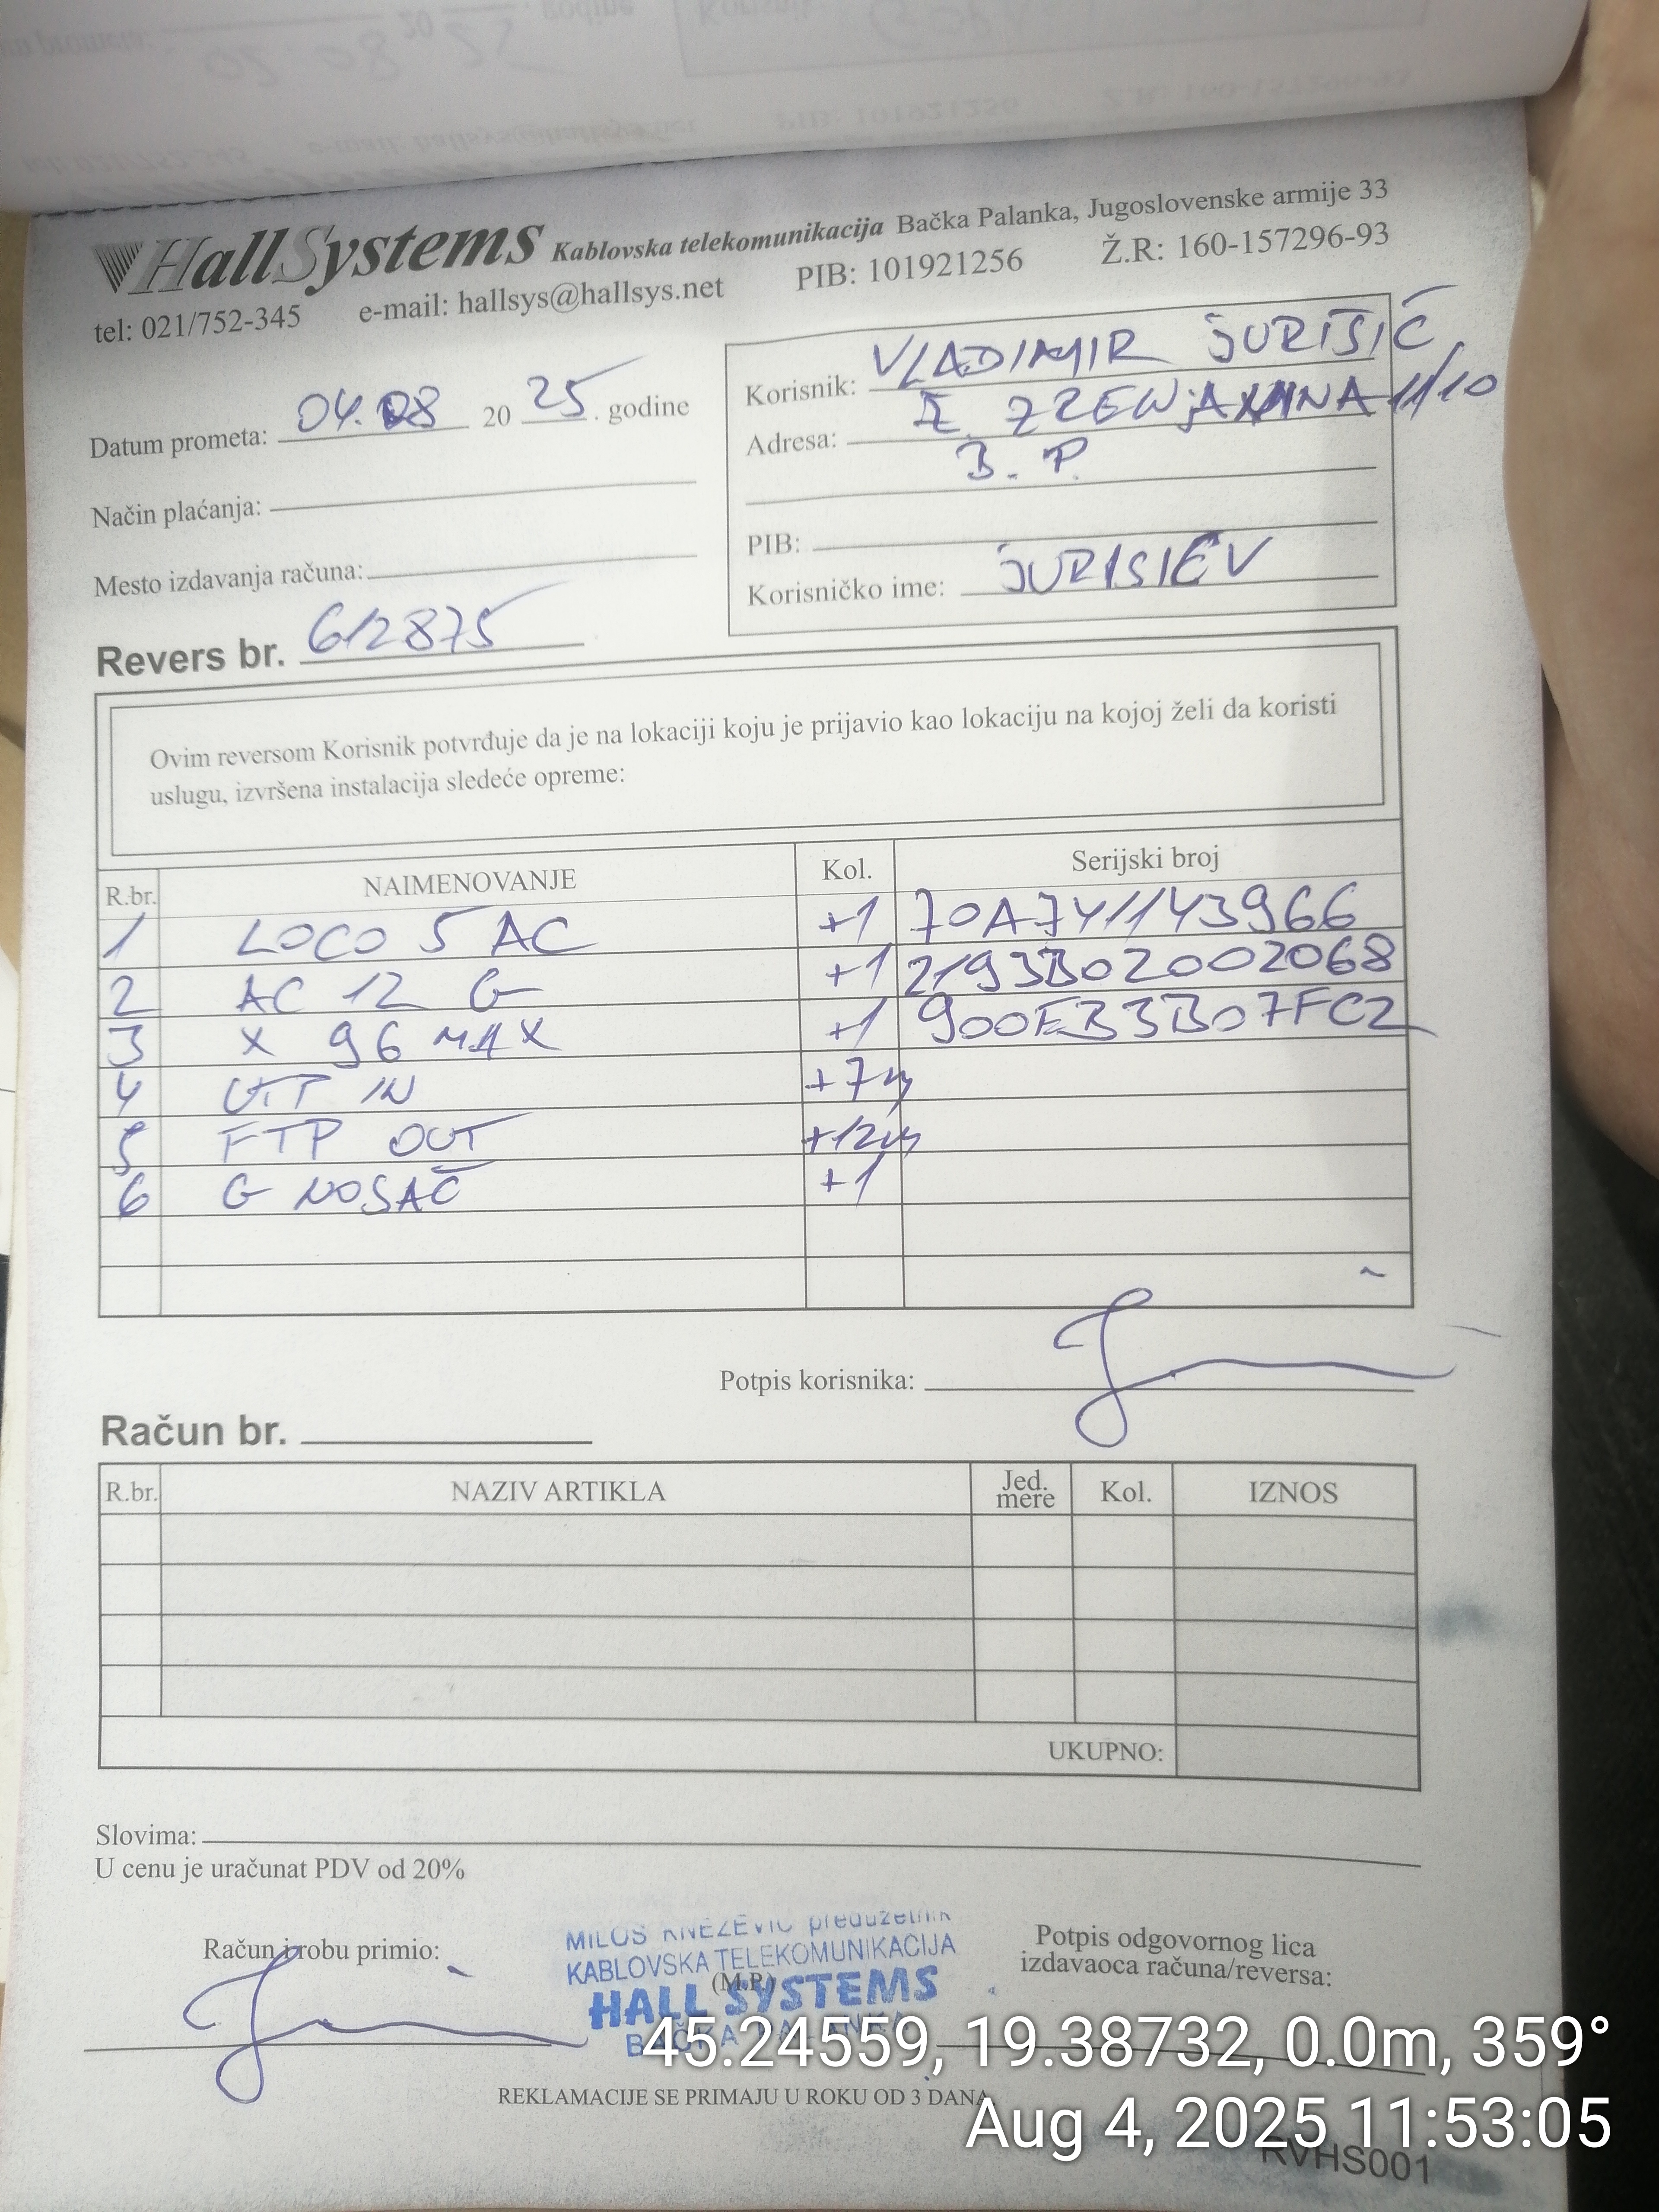 HallSystems Kablovska telekomunikacija Bačka Palanka, Jugoslovenske armije 33
tel: 021/752-345 e-mail: hallsys@hallsys.net PIB: 101921256 Ž.R: 160-157296-93
Datum prometa: 04.08 2025. godine
Način plaćanja:
Mesto izdavanja računa:
Korisnik: VLADIMIR JURIŠIĆ
Adresa: Ž. ZRENjANINA 11/10
B. P.
PIB:
Korisničko ime: JURISIEV
Revers br. 612875
Ovim reversom Korisnik potvrđuje da je na lokaciji koju je prijavio kao lokaciju na kojoj želi da koristi
uslugu, izvršena instalacija sledeće opreme:
R.br. NAIMENOVANJE Kol. Serijski broj
1 LOCO 5 AC +1 70A741143966
2 AC 12 G +1 2193B02002068
3 X 96 MAX +1 900EB3B07FC2
4 UTP IN +7m
5 FTP OUT +12m
6 G NOSAČ +1
Potpis korisnika:
Račun br.
R.br. NAZIV ARTIKLA Jed. mere Kol. IZNOS
UKUPNO:
Slovima:
U cenu je uračunat PDV od 20%
Račun i robu primio:
MILOŠ KNEŽEVIĆ preduzetnik
KABLOVSKA TELEKOMUNIKACIJA
(M.P.)
HALL SYSTEMS
BAČKA PALANKA
Potpis odgovornog lica
izdavaoca računa/reversa:
REKLAMACIJE SE PRIMAJU U ROKU OD 3 DANA.
45.24559, 19.38732, 0.0m, 359°
Aug 4, 2025 11:53:05
RVHS001